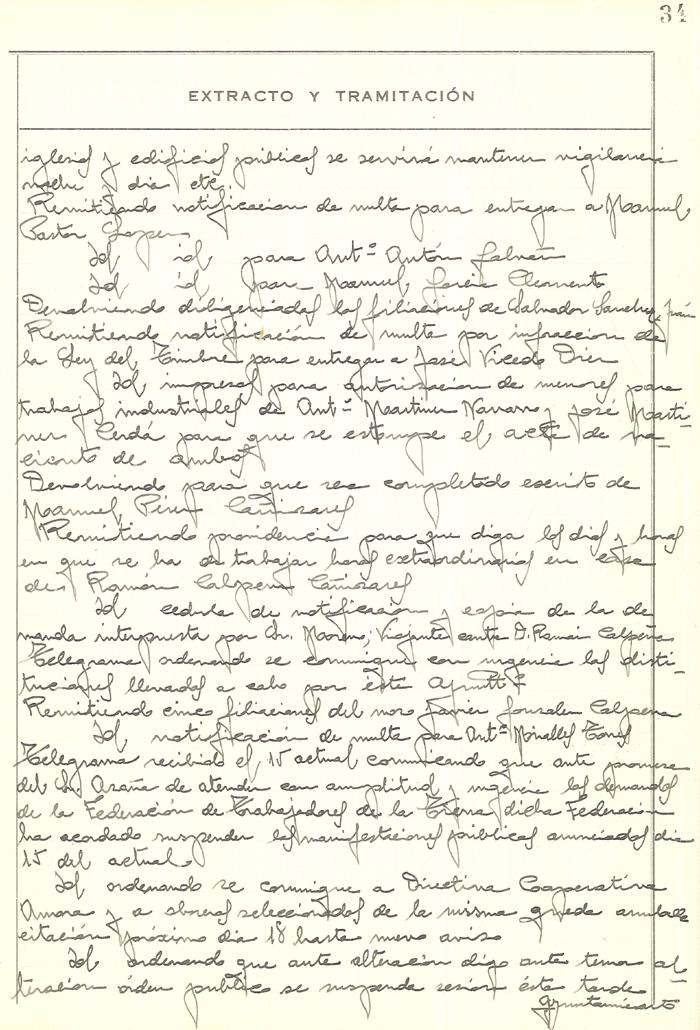 34
EXTRACTO Y TRAMITACIÓN
iglesias y edificios públicos se servirá mantener vigilancia
noche y dia etc.
Remitiendo notificacion de multa para entregar a Manuel
Pastor Lopez
Id id para Antº Antón Galván
Id id para Manuel Garcia Clemente
Devolviendo diligenciadas las filiaciones de Salvador Sanchez
Remitiendo notificación de multa por infraccion de
la Ley del Timbre para entregar a José Vicedo Diez
Id impresos para autorizacion de menores para
trabajos industriales de Antº Martinez Navarro y José Marti-
nez Cerdá para que se estampe el acta de na-
cimiento de ambos
Devolviendo para que sea completado escrito de
Manuel Pérez Cañizares
Remitiendo providencia para que diga los dias y horas
en que se ha de trabajar horas extraordinarias en casa
de Ramón Calpena Cañizares
Id cedula de notificación y copia de la de
manda interpuesta por Sr. Moreno, Viajante contra D. Ramón Calpena
Telegrama ordenando se comunique con urgencia las desti-
tuciones llevadas a cabo por éste Ayuntº
Remitiendo cinco filiaciones del mozo Javier Gonzalez Calpena
Id notificación de multa para Antº Miralles Torres
Telegrama recibido el 15 actual comunicando que ante promesa
del Sr. Azaña de atender con amplitud y urgencia las demandas
de la Federación de Trabajadores de la Tierra, dicha Federacion
ha acordado suspender las manifestaciones públicas anunciadas dia
15 del actual.
Id ordenando se comunique a Directiva Cooperativa
Amora y a obreros seleccionados de la misma queda anulada
citación próximo dia 18 hasta nuevo aviso
Id ordenando que ante alteracion digo ante temor al-
teracion órden publico se suspenda sesión ésta tarde
Ayuntamiento